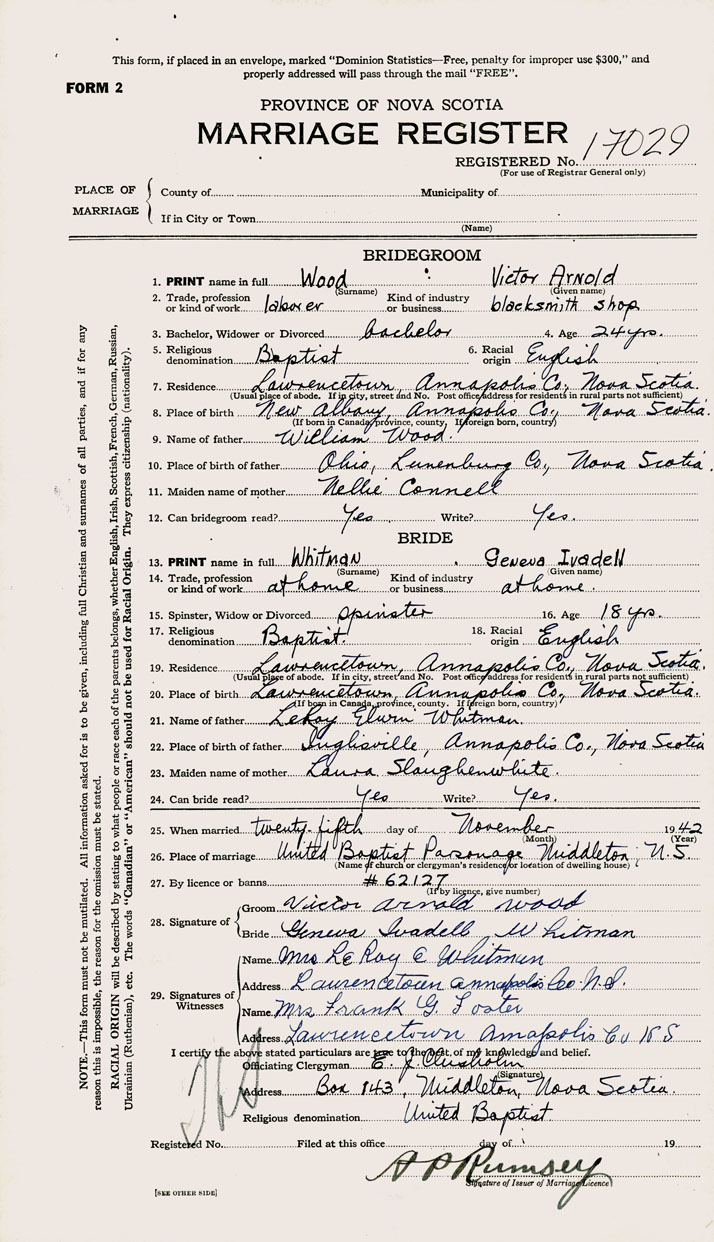 This form, if placed in an envelope, marked "Dominion Statistics—Free, penalty for improper use $300," and
properly addressed will pass through the mail "FREE".
FORM 2
PROVINCE OF NOVA SCOTIA
MARRIAGE REGISTER
REGISTERED No. 17029
(For use of Registrar General only)
PLACE OF MARRIAGE
County of Municipality of
If in City or Town
(Name)
BRIDEGROOM
1. PRINT name in full Wood Victor Arnold
(Surname) (Given name)
2. Trade, profession or kind of work laborer Kind of industry or business blacksmith shop
3. Bachelor, Widower or Divorced bachelor 4. Age 24 yrs.
5. Religious denomination Baptist 6. Racial origin English
7. Residence Lawrencetown, Annapolis Co., Nova Scotia.
(Usual place of abode. If in city, street and No. Post office address for residents in rural parts not sufficient)
8. Place of birth New Albany, Annapolis Co., Nova Scotia.
(If born in Canada, province, county. If foreign born, country)
9. Name of father William Wood.
10. Place of birth of father Ohio, Lunenburg Co., Nova Scotia.
11. Maiden name of mother Nellie Connell
12. Can bridegroom read? Yes Write? Yes.
BRIDE
13. PRINT name in full Whitman Geneva Ivadell
(Surname) (Given name)
14. Trade, profession or kind of work at home Kind of industry or business at home.
15. Spinster, Widow or Divorced spinster 16. Age 18 yrs.
17. Religious denomination Baptist. 18. Racial origin English
19. Residence Lawrencetown, Annapolis Co., Nova Scotia.
(Usual place of abode. If in city, street and No. Post office address for residents in rural parts not sufficient)
20. Place of birth Lawrencetown, Annapolis Co., Nova Scotia.
(If born in Canada, province, county. If foreign born, country)
21. Name of father LeRoy Elwin Whitman.
22. Place of birth of father Inglisville, Annapolis Co., Nova Scotia
23. Maiden name of mother Laura Slaughenwhite.
24. Can bride read? Yes Write? Yes.
25. When married twenty-fifth day of November 1942
(Month) (Year)
26. Place of marriage United Baptist Parsonage Middleton, N.S.
(Name of church or clergyman's residence, or location of dwelling house)
27. By licence or banns #62127
(If by licence, give number)
28. Signature of
Groom Victor Arnold Wood
Bride Geneva Ivadell Whitman
29. Signatures of Witnesses
Name Mrs LeRoy E Whitman
Address Lawrencetown Annapolis Co. N.S.
Name Mrs Frank G. Foster
Address Lawrencetown Anapolis Co N S
I certify the above stated particulars are true to the best of my knowledge and belief.
Officiating Clergyman E. J. Chisholm
(Signature)
Address Box 143, Middleton, Nova Scotia.
Religious denomination United Baptist.
Registered No. Filed at this office day of 19
A P Rumsey
Signature of Issuer of Marriage Licence
[SEE OTHER SIDE]
NOTE.—This form must not be mutilated. All information asked for is to be given, including full Christian and surnames of all parties, and if for any
reason this is impossible, the reason for the omission must be stated.
RACIAL ORIGIN will be described by stating to what people or race each of the parents belongs, whether English, Irish, Scottish, French, German, Russian,
Ukrainian (Ruthenian), etc. The words "Canadian" or "American" should not be used for Racial Origin. They express citizenship (nationality).